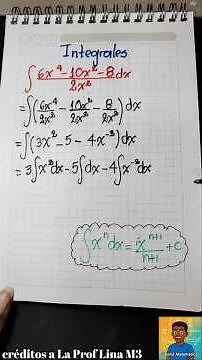 Integrales
∫ 6x⁴ - 10x² - 8 / 2x² dx
= ∫ (6x⁴/2x² - 10x²/2x² - 8/2x²) dx
= ∫ (3x² - 5 - 4x⁻²) dx
= 3∫x²dx - 5∫dx - 4∫x⁻²dx
∫ xⁿ dx = xⁿ⁺¹/n+1 + c
créditos a La Prof Lina M3